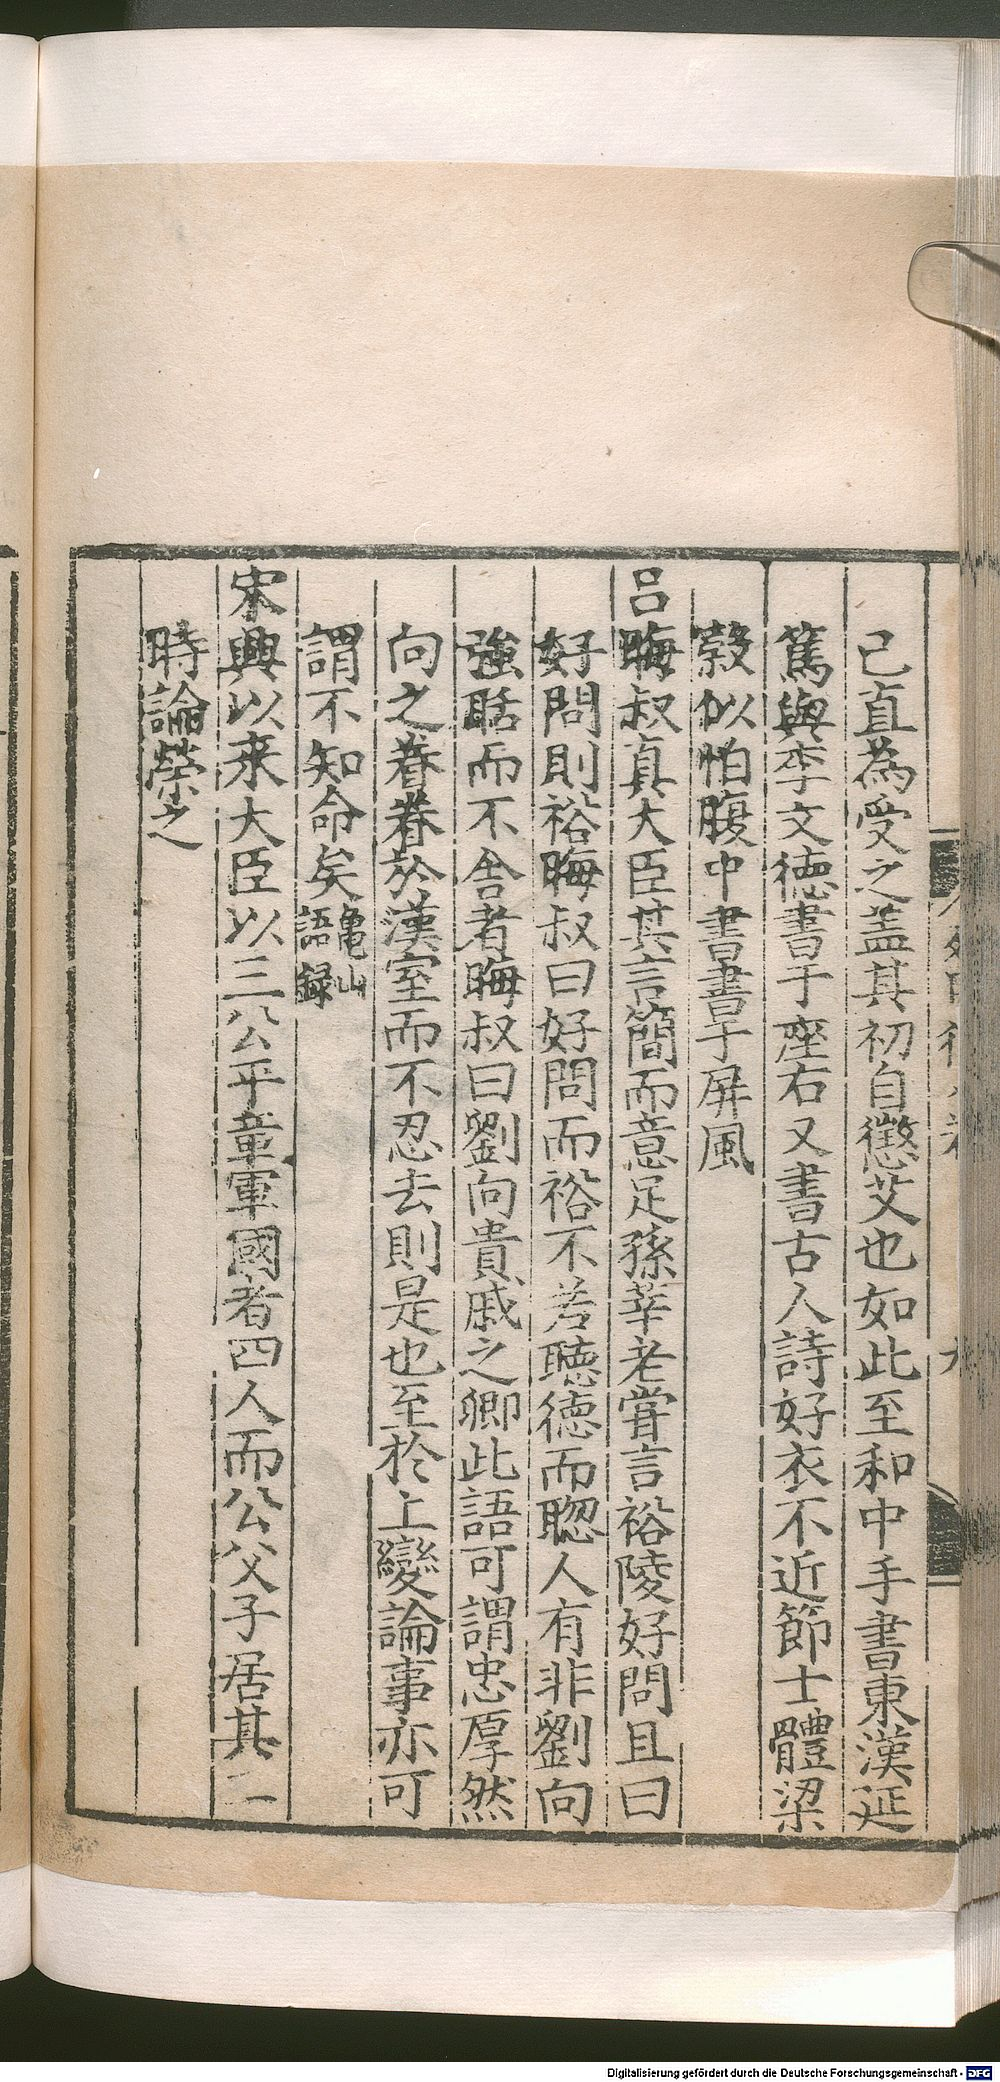 己直為受之盖其初自懲艾也如此至和中手書東漢延
篤與李文徳書于座右又書古人詩好衣不近節士體梁
糓似怕腹中書書于屏風
吕晦叔真大臣其言簡而意足孫莘老嘗言裕陵好問且曰
好問則裕晦叔曰好問而裕不若聴徳而聦人有非劉向
強聒而不舎者晦叔曰劉向貴戚之卿此語可謂忠厚然
向之眷眷於漢室而不忍去則是也至於上變論事亦可
謂不知命矣龜山
語録
宋興以来大臣以三公平章軍國者四人而公父子居其二
時論榮之
Digitalisierung gefördert durch die Deutsche Forschungsgemeinschaft - DFG